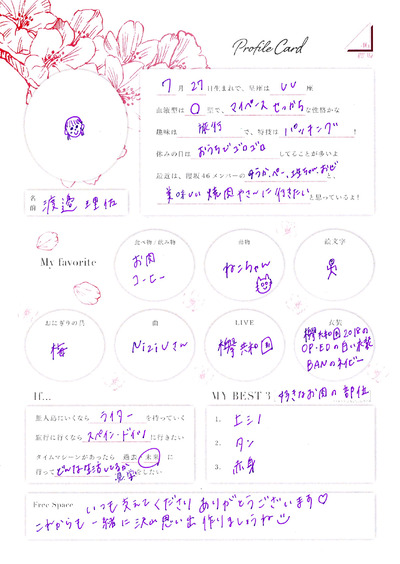 Profile Card
7月27日生まれで、星座はしし座
血液型はO型で、マイペース せっかちな性格かな
趣味は旅行で、特技はパッキング!
休みの日はおうちでゴロゴロしてることが多いよ
最近は、櫻坂46メンバーの
美味しい焼肉やさんに行きたいと思っているよ!
名前
渡邉理佐
My favorite
食べ物/飲み物
お肉
コーヒー
動物
ねこちゃん
絵文字
おにぎりの具
梅
曲
NiziUさん
LIVE
欅共和国
衣装
欅共和国2018の
OP・EDの白い衣装
BANのネイビー
If...
無人島にいくならライターを持っていく
旅行に行くならスペイン・ドイツに行きたい
タイムマシーンがあったら 過去 未来 に
行ってどんな生活してるか見学をしたい
MY BEST 3 好きなお肉の部位
1. ヒシノ
2. タン
3. 赤身
Free Space
いつも支えてくださりありがとうございます♡
これからも一緒に沢山思い出作りましょうね